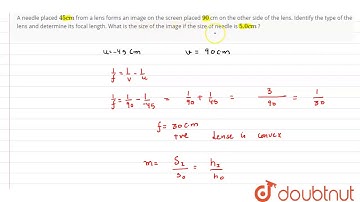 A needle placed 45cm from a lens forms an image on the screen placed 90 cm on the other side of the lens. Identify the type of
the lens and determine its focal length. What is the size of the image if the size of needle is 5.0cm ?
u=-45cm v = 90cm
1/f = 1/v - 1/u
1/f = 1/90 - 1/-45 = 1/90 + 1/45 = 3/90 = 1/30
f = 30cm
+ve lense is convex
m = SI/SO = hI/hO
doubtnut